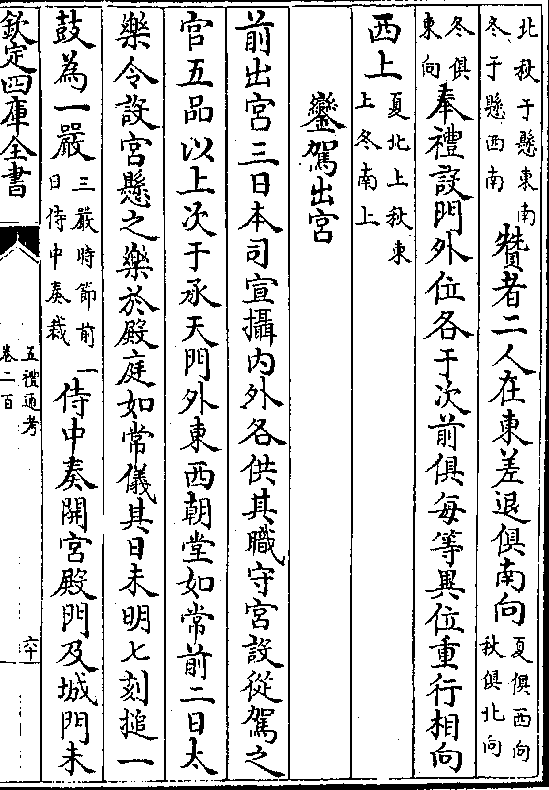 北秋于懸東南
冬于懸西南
贊者二人在東差退俱南向
夏俱西向
秋俱北向
冬俱
東向
奉禮設門外位各于次前俱每等異位重行相向
西上
夏北上秋東
上冬南上
鑾駕出宮
前出宮三日本司宣攝内外各供其職守宮設從駕之
官五品以上次于承天門外東西朝堂如常前二日太
樂令設宮懸之樂於殿庭如常儀其日未明七刻搥一
鼓為一嚴
三嚴時節前一
日侍中奏裁
侍中奏開宮殿門及城門未
欽定四庫全書
五禮通考
卷二百
六十